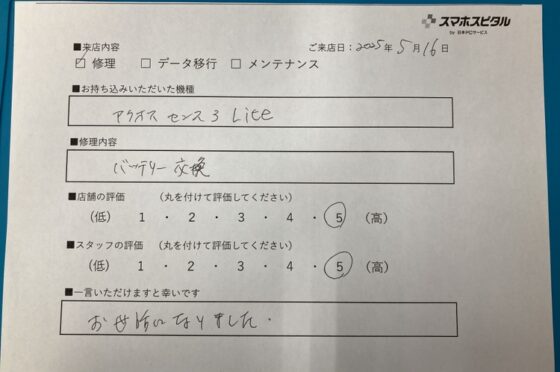 スマホスピタル
by 日本PCサービス
■来店内容
ご来店日：2025年5月16日
☑ 修理 □ データ移行 □ メンテナンス
■お持ち込みいただいた機種
アクオス センス3 Lite
■修理内容
バッテリー交換
■店舗の評価 （丸を付けて評価してください）
（低） 1 ・ 2 ・ 3 ・ 4 ・ 5 （高）
■スタッフの評価 （丸を付けて評価してください）
（低） 1 ・ 2 ・ 3 ・ 4 ・ 5 （高）
■一言いただけますと幸いです
お世話になりました.